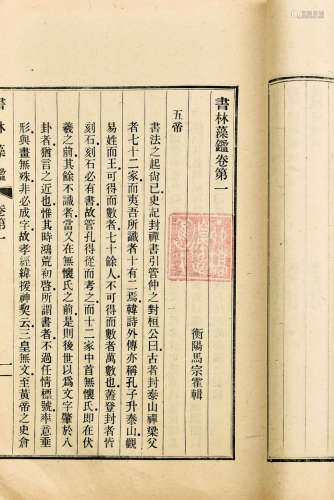 書林藻鑑卷第一
衡陽馬宗霍輯
五帝
書法之起尙已史記封禪書引管仲之對桓公曰古者封泰山禪梁父
者七十二家而夷吾所識者十有二焉韓詩外傳亦稱孔子升泰山觀
易姓而王可得而數者七十餘人不可得而數者萬數也蓋登封者皆
刻石刻石必有書故管孔得從而考之而十二家中首無懷氏即在伏
羲之前其餘不識者當又在無懷氏之前是則後世以爲文字肇於八
卦者猶言之近也惟其時鴻荒初啓所謂書者不過任情標號率意垂
形與畫無殊非必成字故孝經緯援神契云三皇無文至黃帝之史倉
書林藻鑑
卷第一